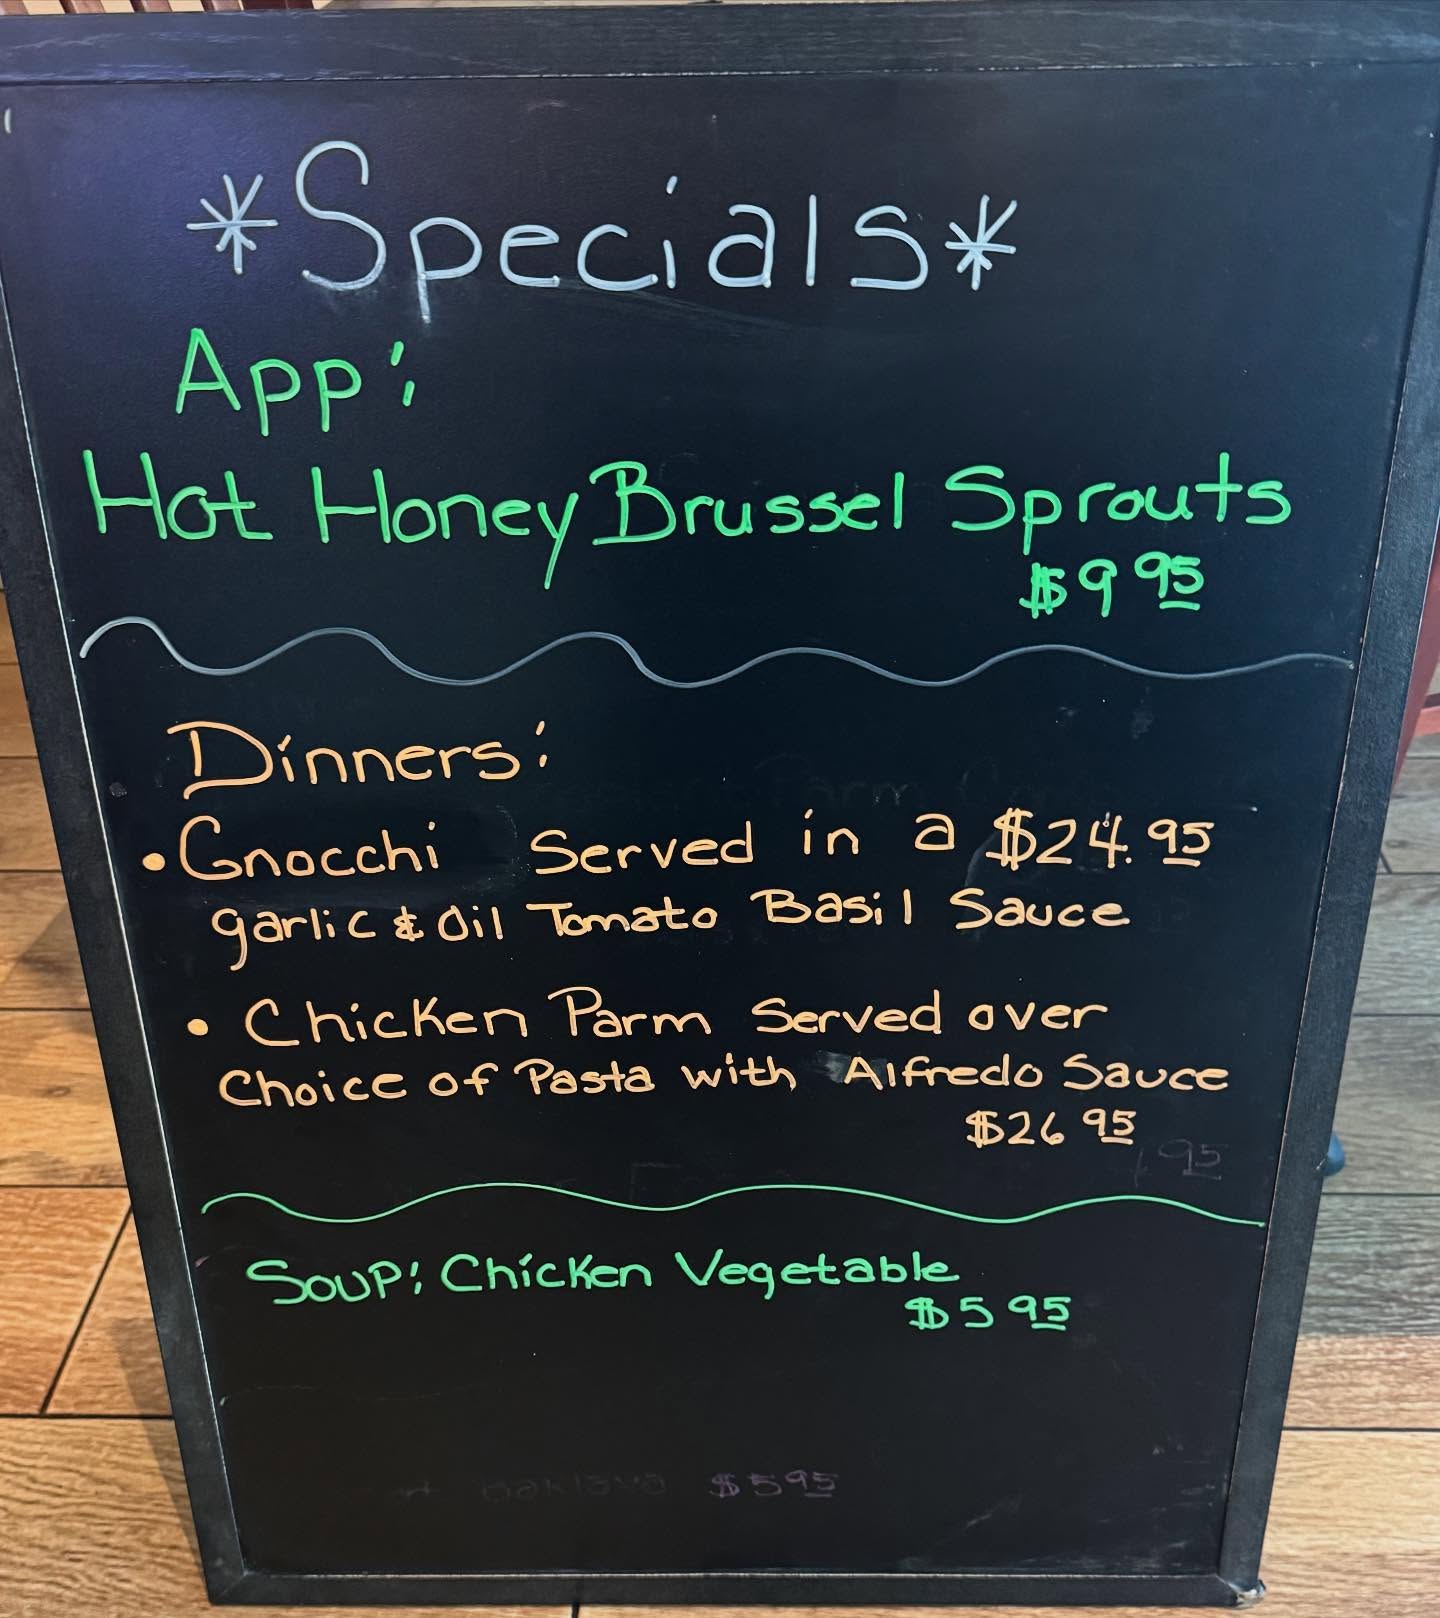 *Specials*
App:
Hot Honey Brussel Sprouts
$9 95
Dinners:
• Gnocchi Served in a $24.95
garlic & Oil Tomato Basil Sauce
• Chicken Parm Served over
Choice of Pasta with Alfredo Sauce
$26 95
95
Soup: Chicken Vegetable
$5 95
baklava $5 95